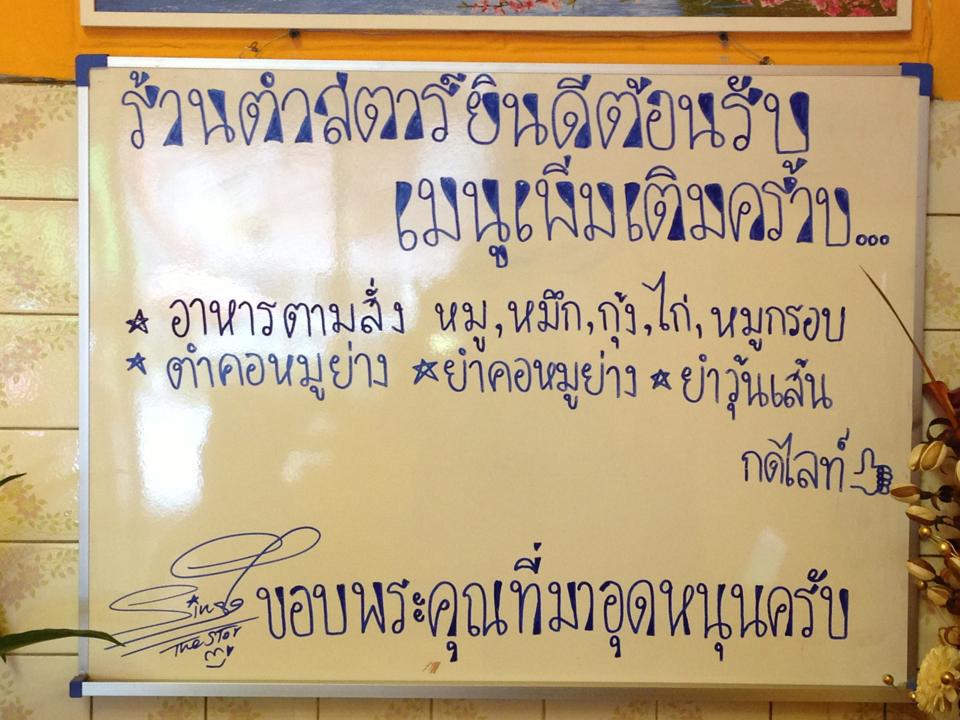 ร้านตำสตาร์ ยินดีต้อนรับ
เมนูเพิ่มเติมคร้าบ...
☆ อาหารตามสั่ง หมู, หมึก, กุ้ง, ไก่, หมูกรอบ
☆ ตำคอหมูย่าง ☆ ยำคอหมูย่าง ☆ ยำวุ้นเส้น
กดไลท์
The Star
ขอบพระคุณที่มาอุดหนุนครับ